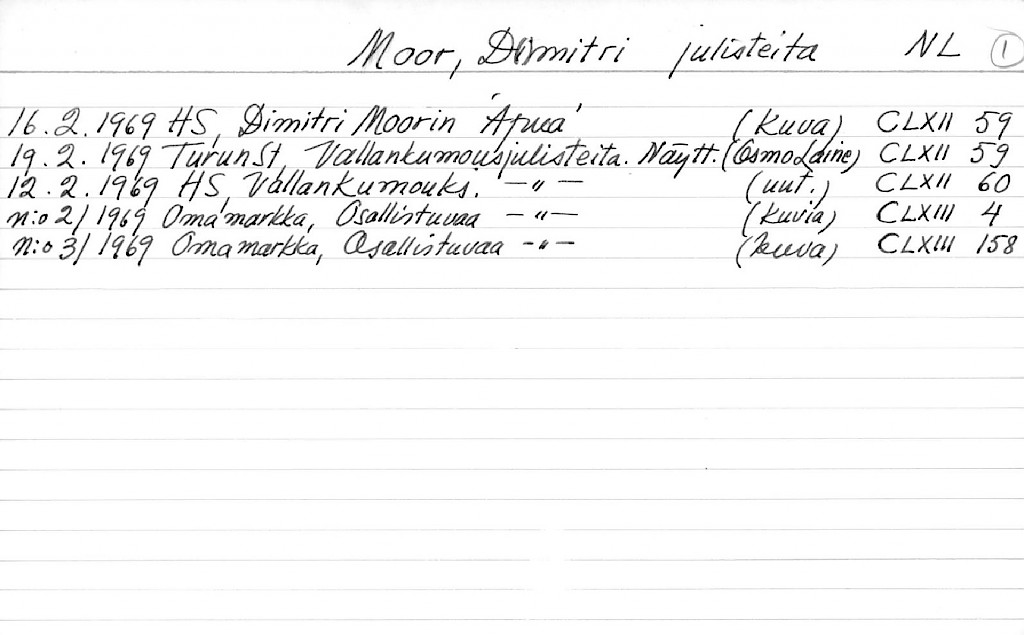 Moor, Dimitri julisteita NL 1
16.2.1969 HS, Dimitri Moorin 'Apua' (kuva) CLXII 59
19.2.1969 TurunSt, Vallankumousjulisteita. Näytt. (Osmo Laine) CLXII 59
12.2.1969 HS, Vallankumouks. —"— (uut.) CLXII 60
n:o 2/1969 Oma markka, Osallistuvaa —"— (kuvia) CLXIII 4
n:o 3/1969 Oma markka, Osallistuvaa —"— (kuva) CLXIII 158